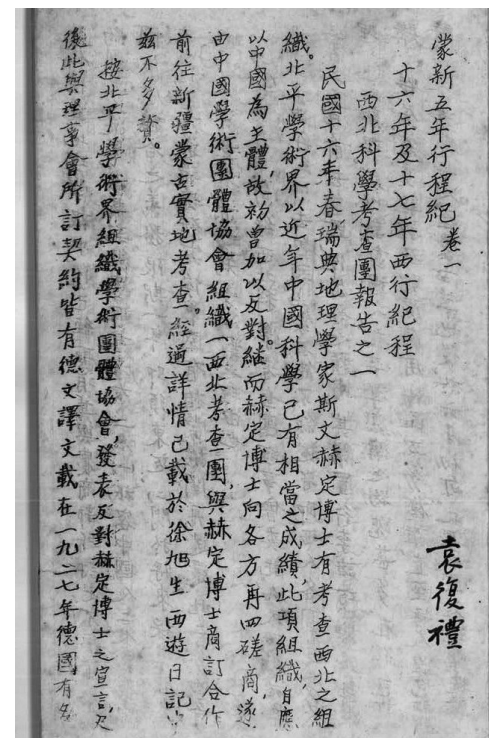 蒙新五年行程紀 卷一
袁復禮
十六年及十七年西行紀程
西北科學考查團報告之一
民國十六年春瑞典地理學家斯文赫定博士有考查西北之組
織。北平學術界以近年中國科學已有相當之成績,此項組織,自應
以中國為主體,故初曾加以反對。繼而赫定博士向各方再四磋商,遂
由中國學術團體協會組織一西北考查團,與赫定博士商訂合作
前往新疆蒙古實地考查。經過詳情已載於徐旭生西遊日記
茲不多贅。
按北平學術界組織學術團體協會,發表反對赫定博士之宣言,及
後此與理事會所訂契約皆有德文譯文載在一九二七年德國,有名